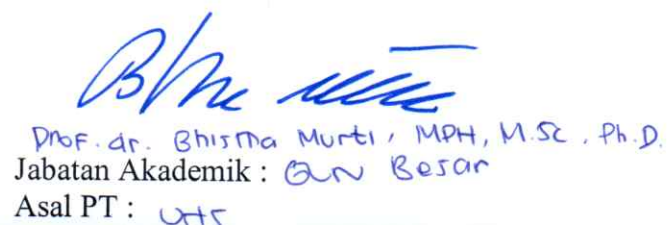 Prof. dr. Bhisma Murti, MPH, M.Sc, Ph.D.
Jabatan Akademik : Guru Besar
Asal PT :